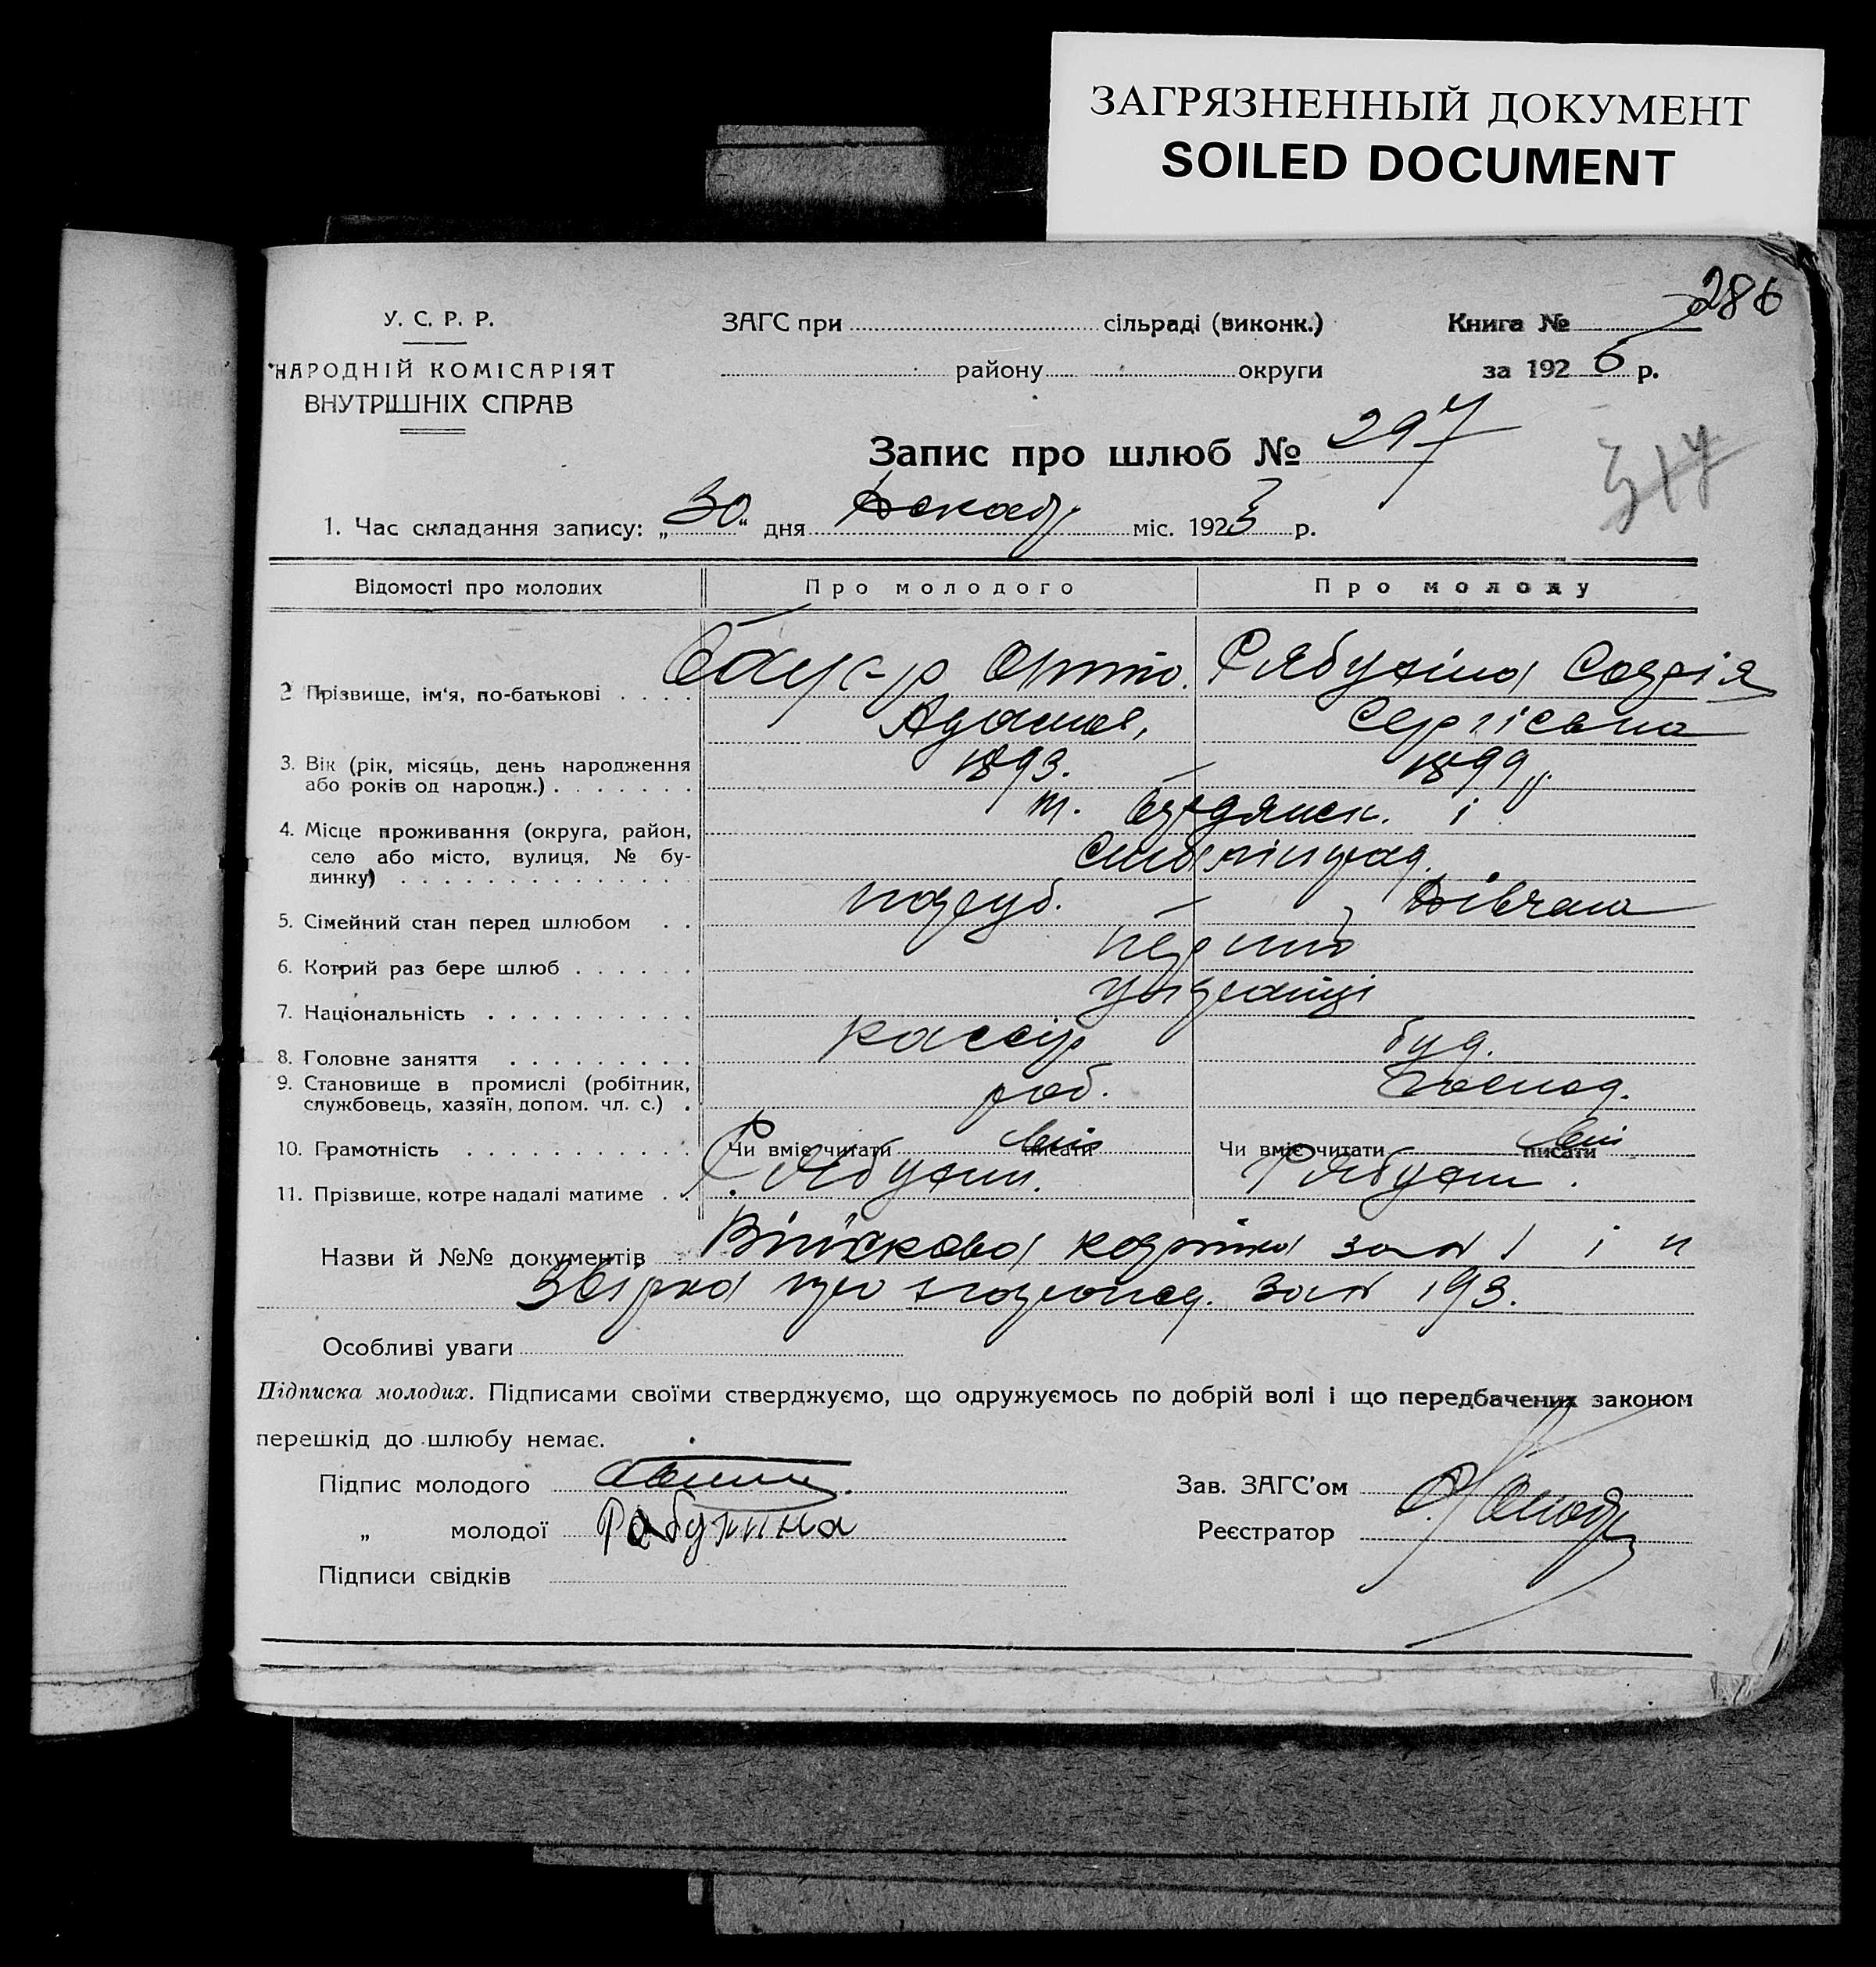 ЗАГРЯЗНЕННЫЙ ДОКУМЕНТ
SOILED DOCUMENT
286
У. С. Р. Р.
НАРОДНІЙ КОМІСАРІЯТ
ВНУТРІШНІХ СПРАВ
ЗАГС при сільраді (виконк.)
району округи
Книга №
за 1926 р.
Запис про шлюб № 297
317
1. Час складання запису: „30“ дня Декабр міс. 1923 р.
Відомості про молодих Про молодого Про молоду
2 Прізвище, ім'я, по-батькові Рябухіна Софія
Сергієвна
3. Вік (рік, місяць, день народження 1893. 1899
або років од народж.)
4. Місце проживання (округа, район, м. Бердянск. і
село або місто, вулиця, № бу-
динку)
5. Сімейний стан перед шлюбом паруб. Дівчина
6. Котрий раз бере шлюб перший
7. Національність українці
8. Головне заняття кассір
9. Становище в промислі (робітник, роб. господ.
службовець, хазяїн, допом. чл. с.)
10. Грамотність Чи вміє читати писати Чи вміє читати писати
11. Прізвище, котре надалі матиме Рябухин. Рябухин.
Назви й №№ документів Війскова картка за № 1 і
Звірка про за № 193.
Особливі уваги
Підписка молодих. Підписами своїми стверджуємо, що одружуємось по добрій волі і що передбачених законом
перешкід до шлюбу немає.
Підпис молодого
„ молодої Рабухина
Підписи свідків
Зав. ЗАГС'ом
Реєстратор